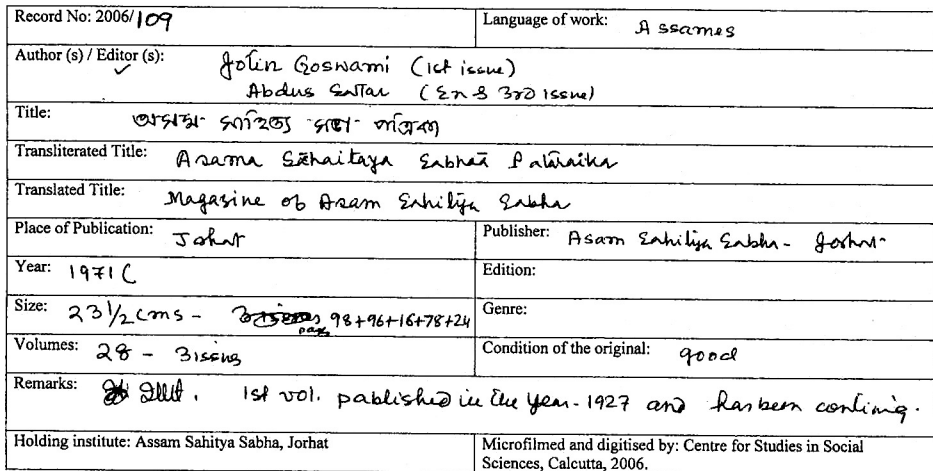 Record No: 2006/109 Language of work: Assames
Author (s) / Editor (s): Jotin Goswami (1st issue)
Abdus Sattar (2n & 3rd issue)
Title: অসম সাহিত্য সভা পত্রিকা
Transliterated Title: Asama Sahaitaya Sabhaa Pataraika
Translated Title: Magazine of Asam Sahitya Sabha
Place of Publication: Johat Publisher: Asam Sahitya Sabha - Jorhat
Year: 1971 C Edition:
Size: 23 1/2 cms - 98+96+16+78+24 Genre:
Volumes: 28 - 3 issues Condition of the original: good
Remarks: Illt. 1st vol. published in the year - 1927 and has been contining.
Holding institute: Assam Sahitya Sabha, Jorhat Microfilmed and digitised by: Centre for Studies in Social
Sciences, Calcutta, 2006.